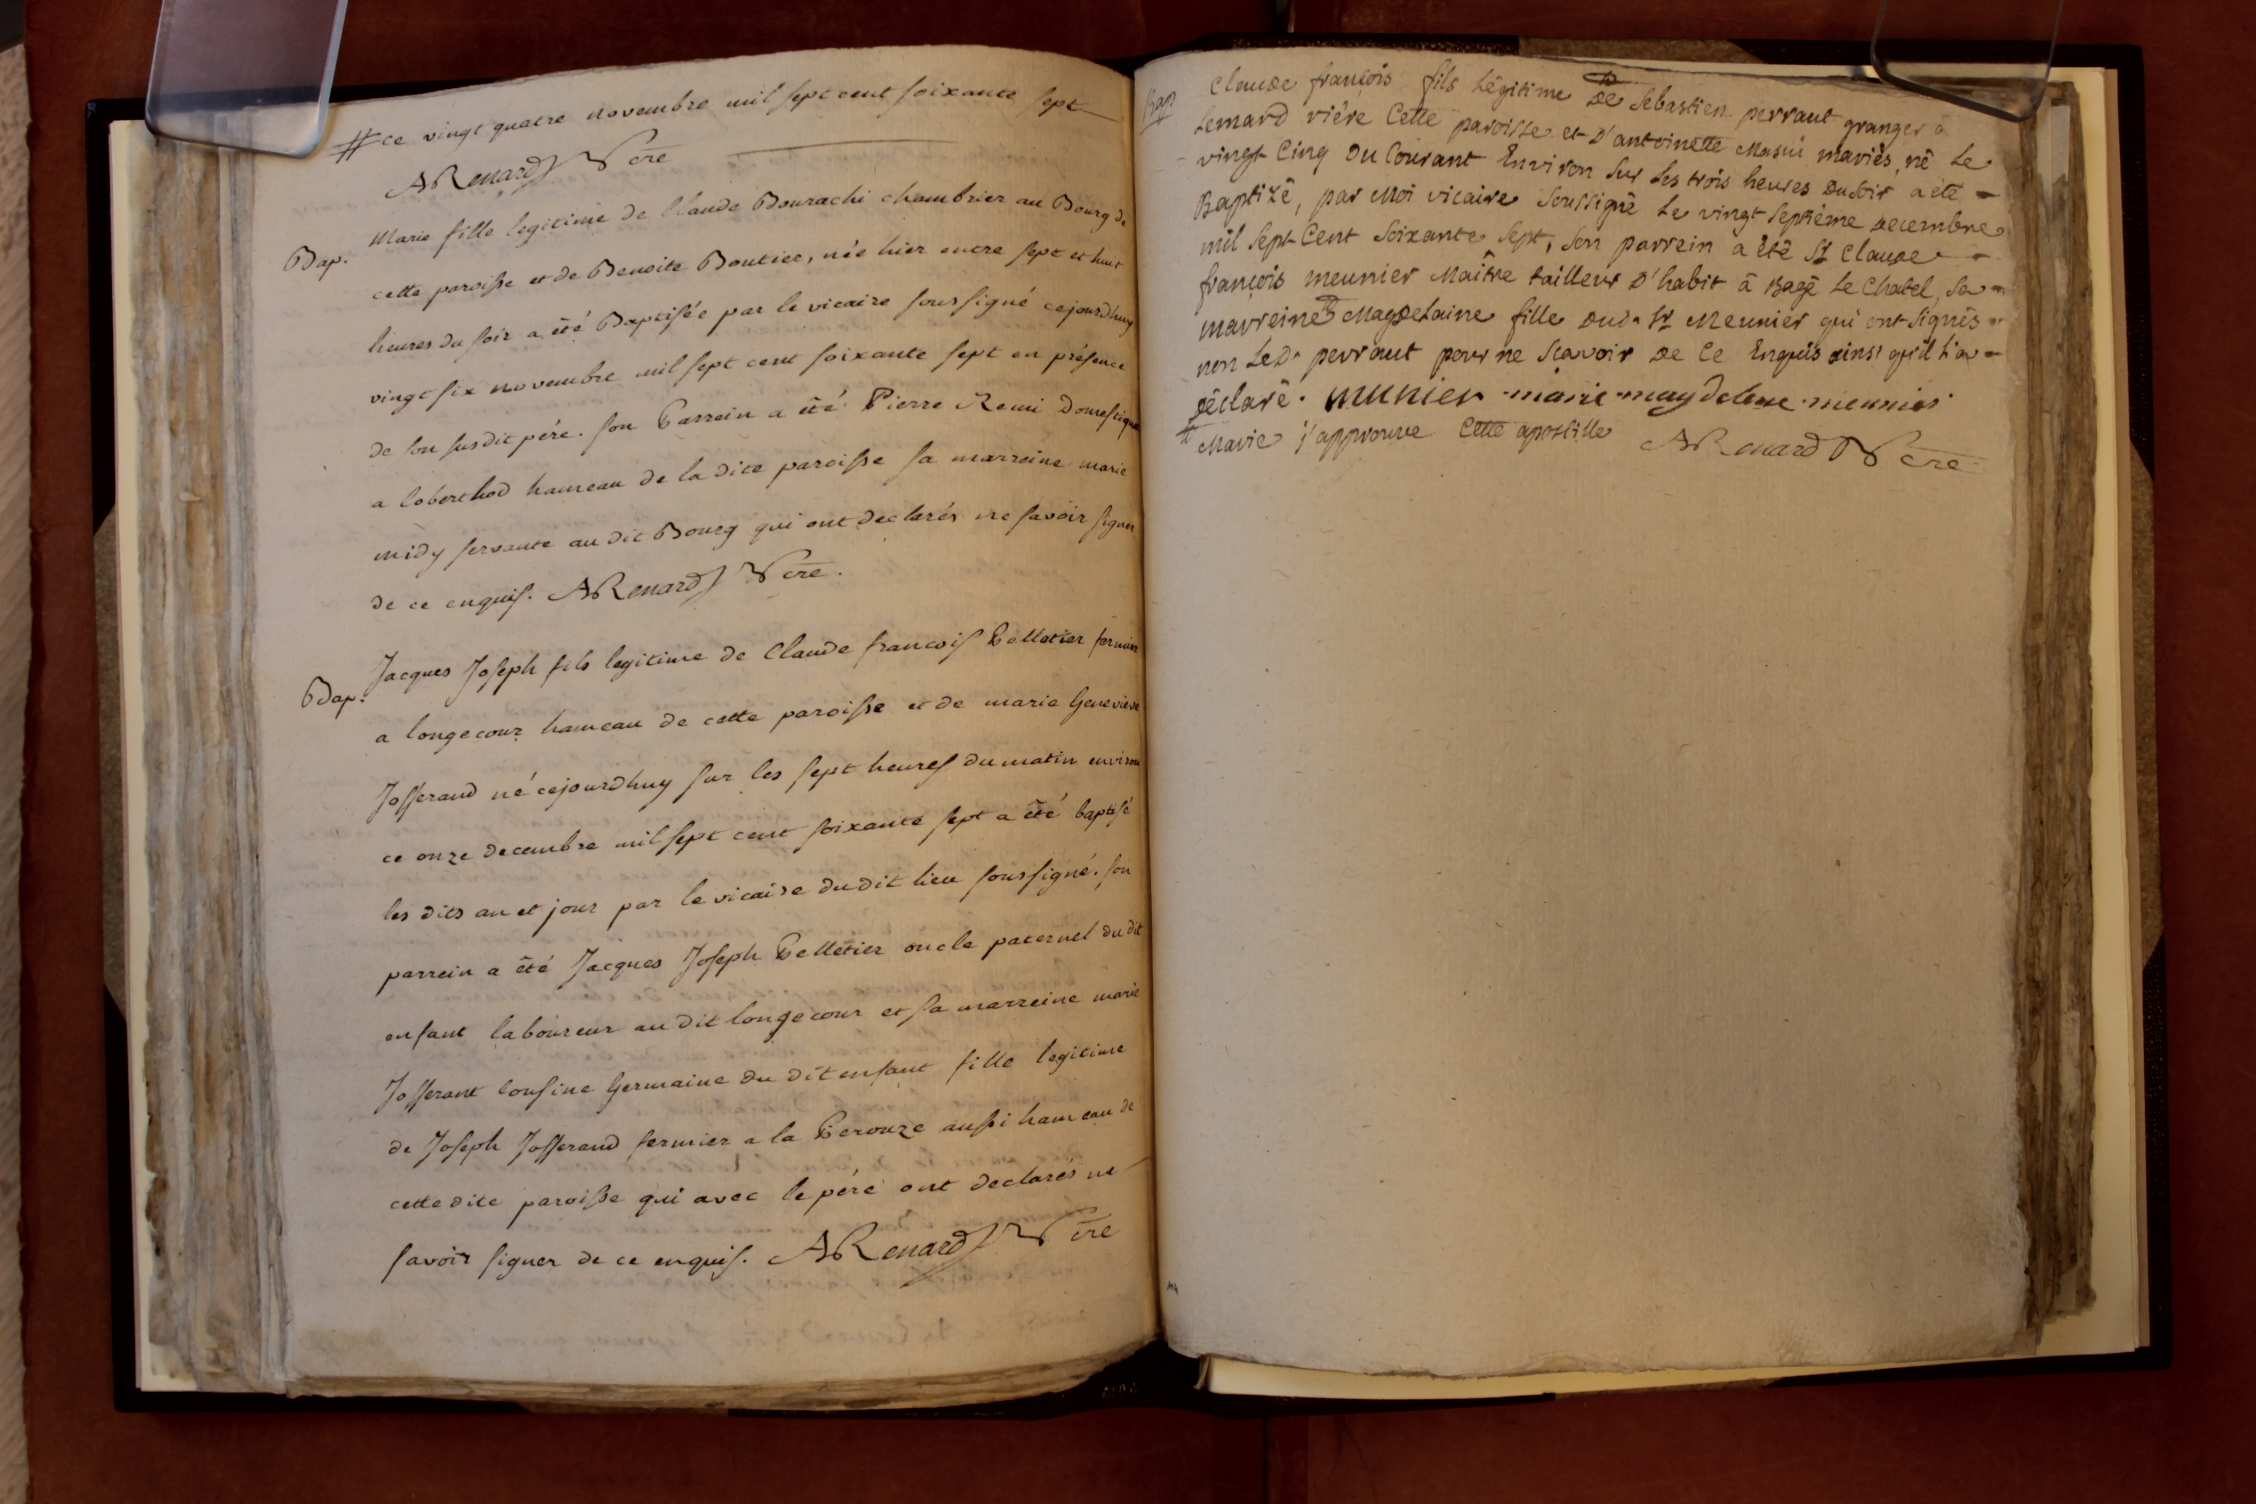 # ce vingt quatre novembre mil sept cent soixante sept
ARenard Vcre
Bap.
Marie fille legitime de Claude Bourachi chambrier au Bourg de
cette paroisse et de Benoite Boutier, née hier entre sept et huit
heures du soir a été Baptisée par le vicaire soussigné cejourdhuy
vingt six novembre mil sept cent soixante sept en présence
de son susdit pére. son Parrein a été Pierre Remi Domestique
a loberthod hameau de la dite paroisse sa marreine marie
midy servante au dit Bourg qui ont declarés ne savoir signer
de ce enquis. ARenard Vcre.
Bap.
Jacques Joseph fils legitime de Claude francois Pelletier fermier
a longecour hameau de cette paroisse et de marie Geneviéve
Josserand né cejourdhuy sur les sept heures du matin environ
ce onze decembre mil sept cent soixante sept a été baptisé
les dits an et jour par le vicaire dudit lieu soussigné. son
parrein a été Jacques Joseph Pelletier oncle paternel du dit
enfant laboureur au dit longecour et sa marreine marie
Josserant cousine Germaine du dit enfant fille legitime
de Joseph Josserand fermier a la Perouze aussi hameau de
cette dite paroisse qui avec le pére ont declarés ne
savoir signer de ce enquis. ARenard Vcre
Bap
Claude françois fils Légitime De Sebastien perraut granger à
Lemard riére Cette paroisse et D'antoinette Masui mariés, né Le
vingt Cinq Du Courant Environ Sur Les trois heures Du Soir a été
Baptizé, par Moi vicaire Soussigné Le vingt Septiéme Decembre
mil Sept Cent Soixante Sept, Son parrein a été Sr Claude
françois meunier Maitre tailleur D'habit à Bagé Le Chatel, Sa
marreine # Magdelaine fille dud. Sr Meunier qui ont Signés
non Led. perraut pour ne Scavoir De Ce Enquis ainsi qu'il L'a
Déclaré. munier marie magdelene meunier
# Marie j'approuve Cette apostille ARenard Vcre